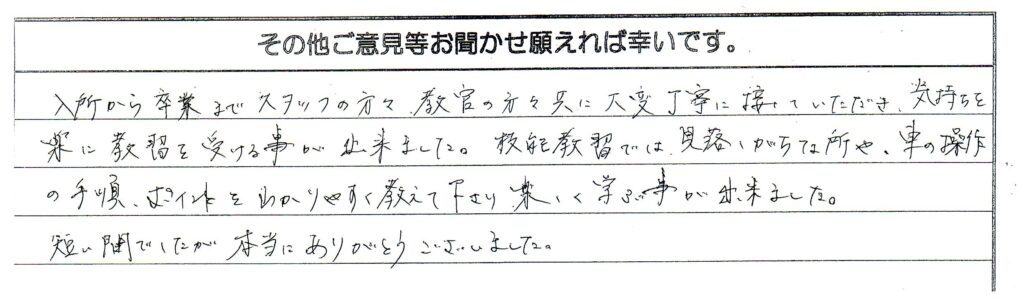 その他ご意見等お聞かせ願えれば幸いです。
入所から卒業まで スタッフの方々、教官の方々共に大変丁寧に接していただき、気持ちを
楽に教習を受ける事が出来ました。技能教習では、見落しがちな所や、車の操作
の手順、ポイントをわかりやすく教えて下さり楽しく学ぶ事が出来ました。
短い間でしたが本当にありがとうございました。